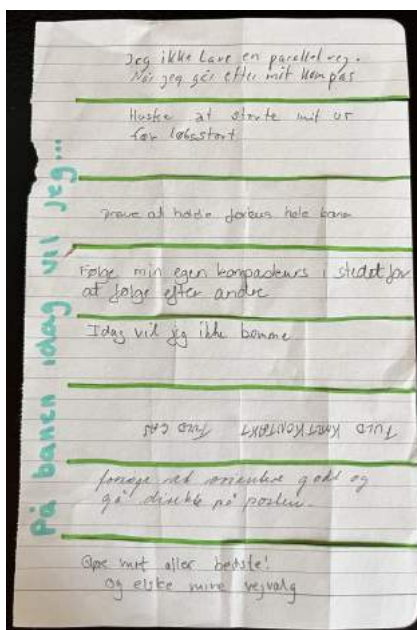 På banen idag vil jeg...
Jeg ikke Lave en parallel vej.
Når jeg går efter mit kompas
Huske at starte mit ur
før løbsstart
Prøve at holde fokus hele banen
Følge min egen kompaskurs i stedet for
at følge efter andre
Idag vil jeg ikke bomme
FULD KORTKONTAKT FULD GAS
forsøge at orientere godt og
gå direkte på posten.
Gøre mit aller bedste!
Og elske mine vejvalg